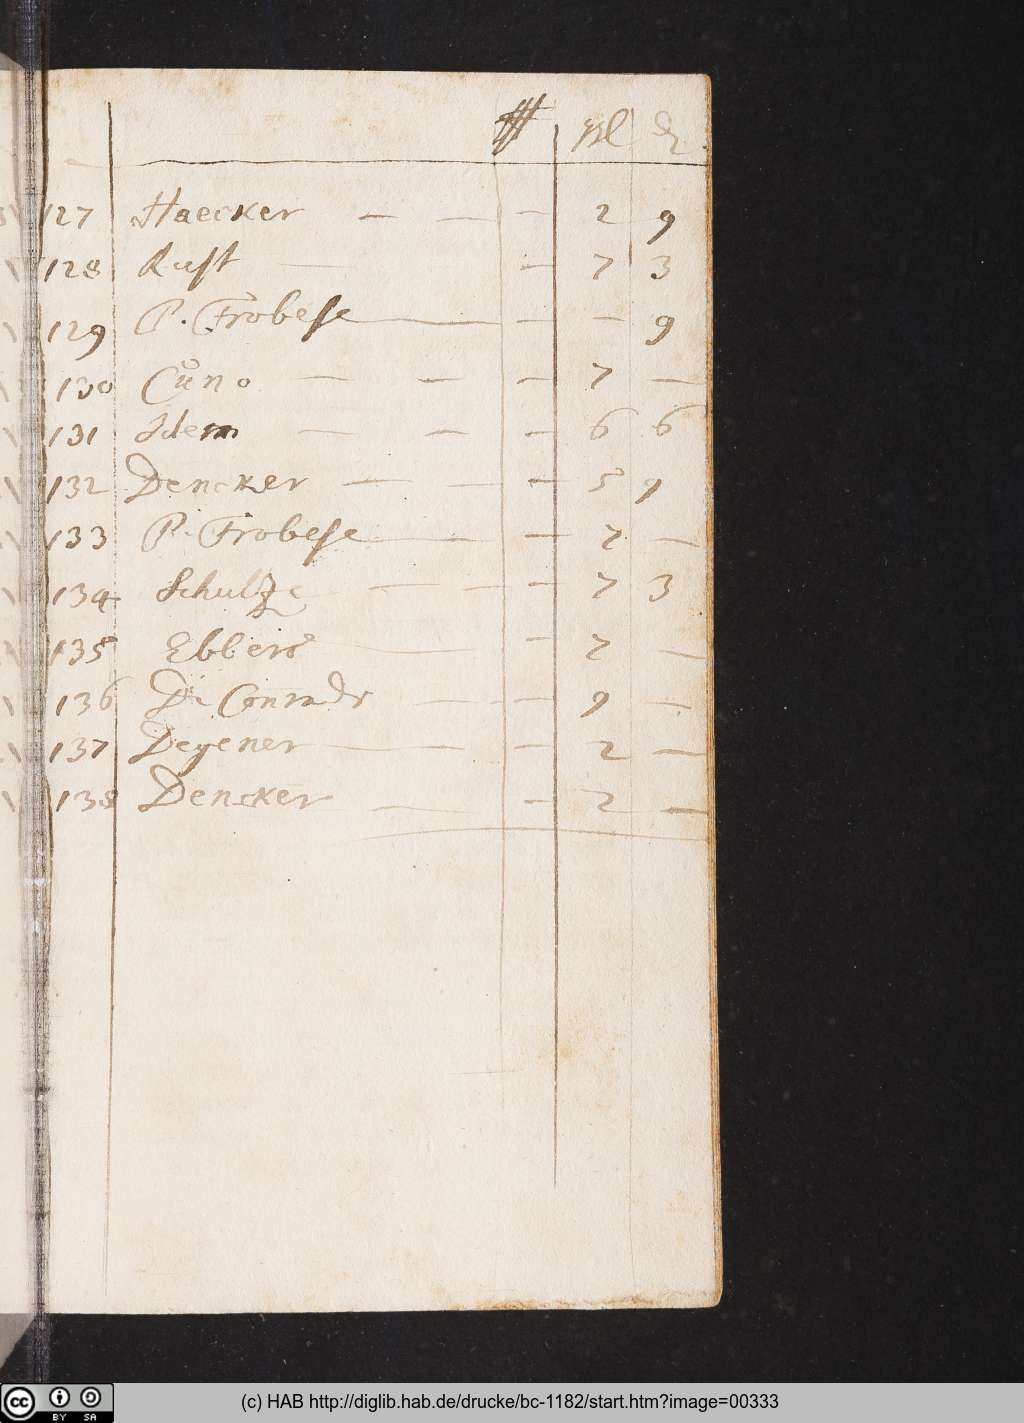 gl ₰
127 Haecker — — — 2 9
128 Rust — — 7 3
129 P. Frobese — — — 9
130 Cuno — — — 7 —
131 Idem — — — 6 6
132 Dencker — — — 5 9
133 P. Frobese — — 2 —
134 Schultze — — — 7 3
135 Ebbers — — 2 —
136 Dr Conradt — — 9 —
137 Degener — — 2 —
138 Dencker — — 2 —
(c) HAB http://diglib.hab.de/drucke/bc-1182/start.htm?image=00333
cc BY SA